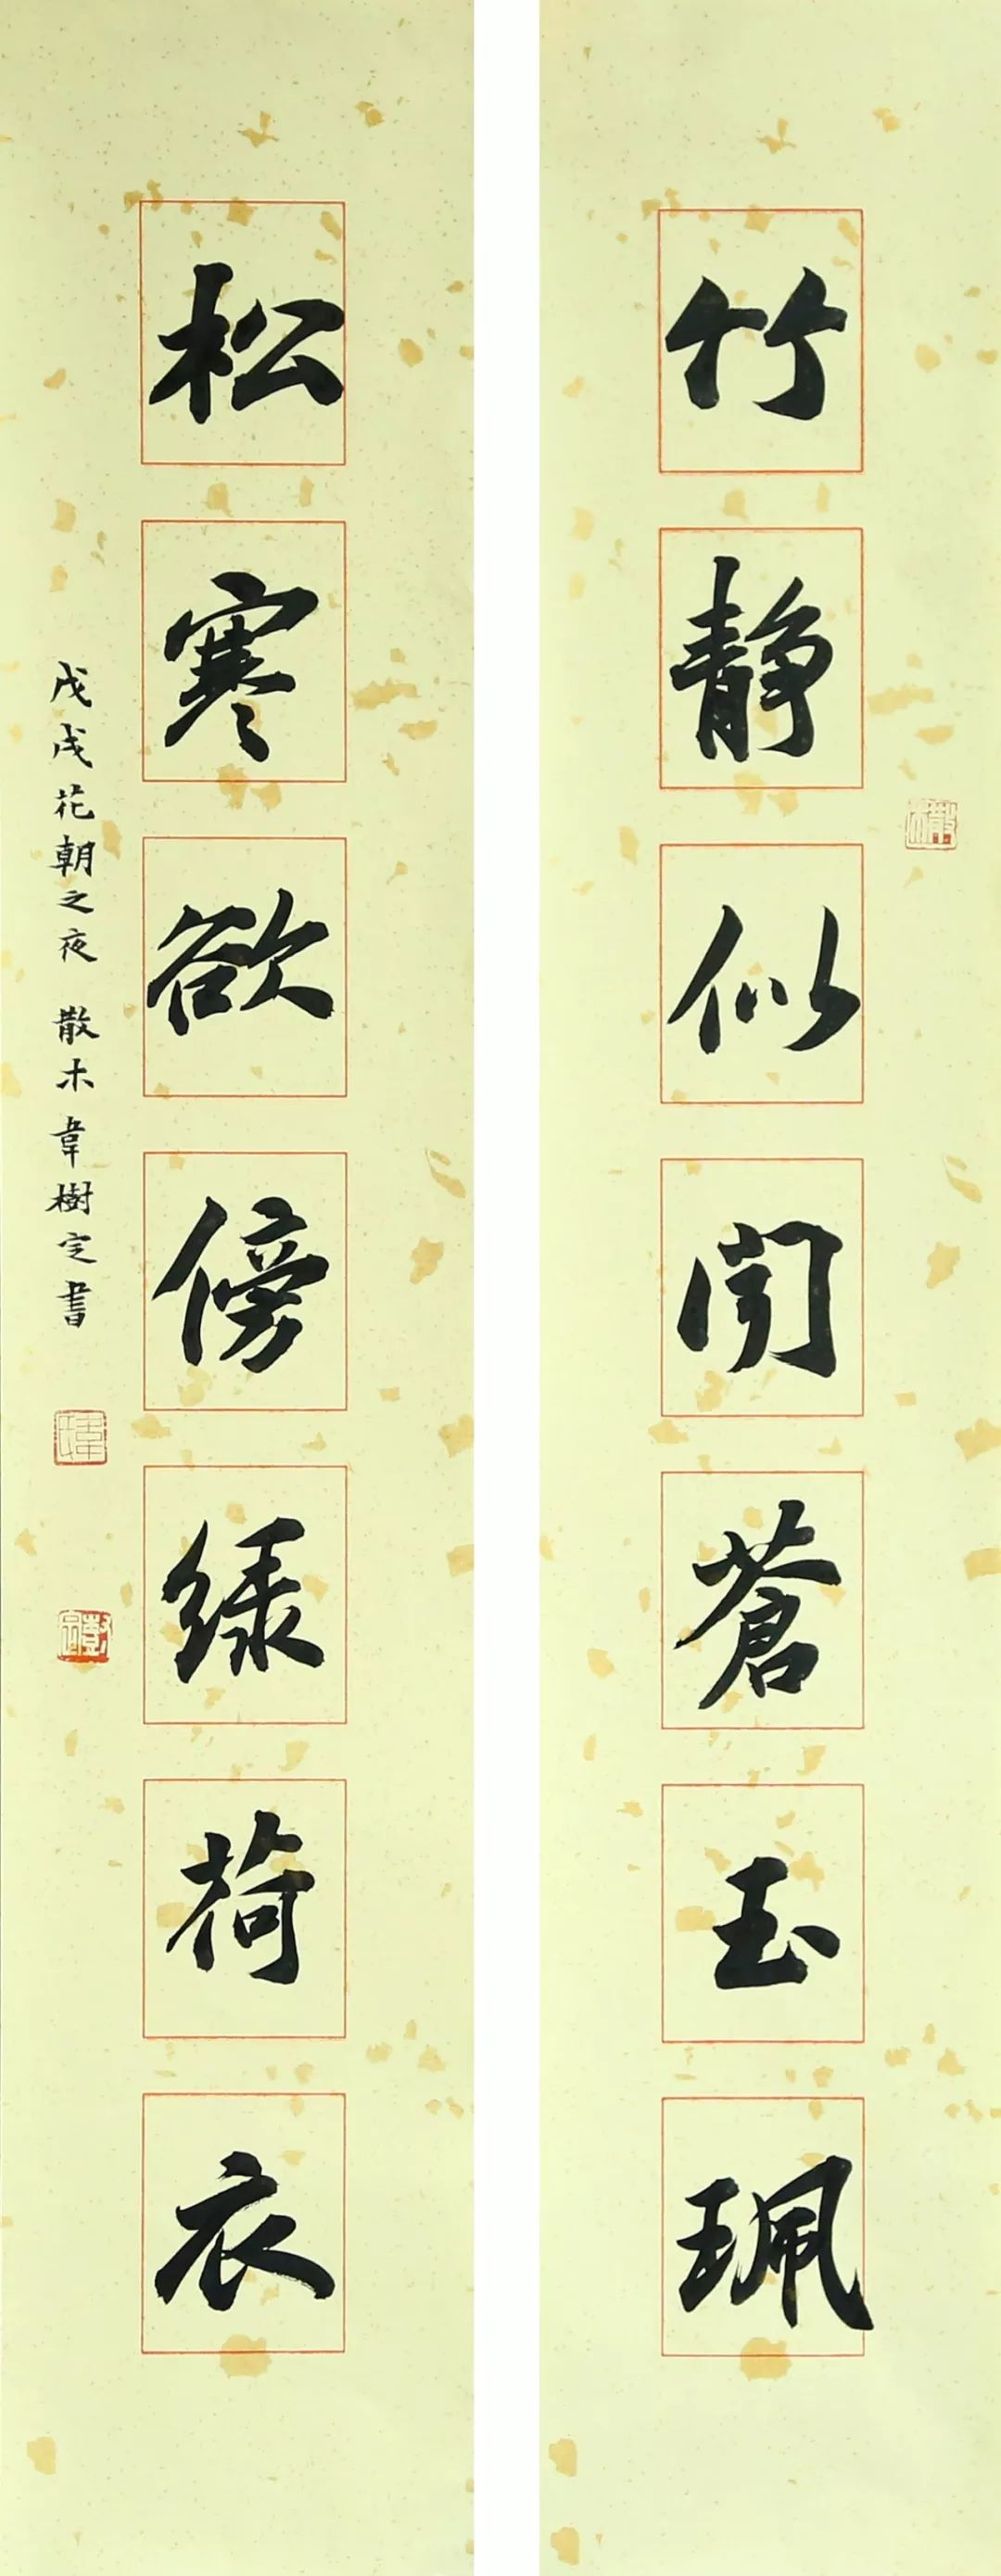 竹静似聞蒼玉珮
松寒欲傍緑荷衣
戊戌花朝之夜 散木韋樹定書